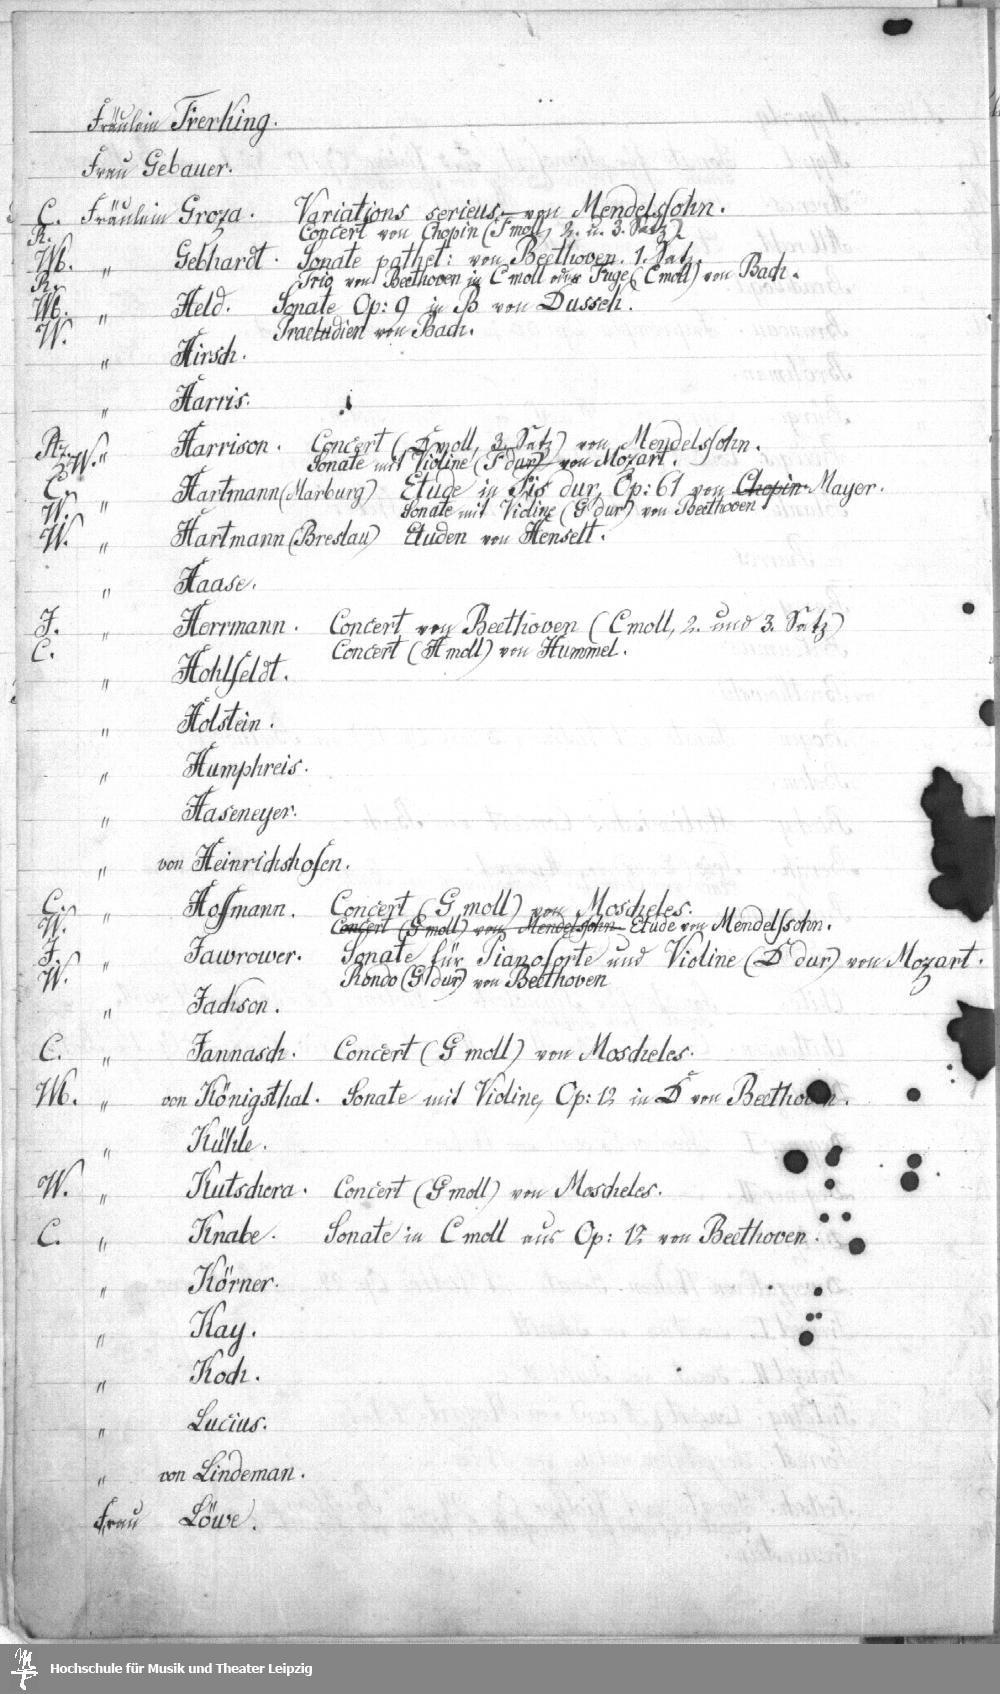 Fräulein Frerking.
Frau Gebauer.
C. Fräulein Groza. Variations serieus. von Mendelssohn.
R. Concert von Chopin (F moll, 2. u. 3. Satz)
M. " Gebhardt. Sonate pathet: von Beethoven. 1. Satz.
R. Trio von Beethoven in C moll oder Fuge (C moll) von Bach.
M. " Held. Sonate Op: 9 in B von Dussek.
W. Praeludien von Bach.
" Hirsch.
" Harris.
Pz. " Harrison. Concert (D moll, 3. Satz) von Mendelssohn.
W. Sonate mit Violine (F dur) von Mozart.
C. " Hartmann (Marburg) Etude in Fis dur, Op: 61 von Chopin Mayer.
W. Sonate mit Violine (G dur) von Beethoven
W. " Hartmann (Breslau) Etuden von Henselt.
" Haase.
J. " Herrmann. Concert von Beethoven (C moll, 2. und 3. Satz)
C. Concert (H moll) von Hummel.
" Hohlfeldt.
" Holstein.
" Humphreis.
" Haseneyer.
" von Heinrichshofen.
C. " Hoffmann. Concert (G moll) von Moscheles.
W. Concert (G moll) von Mendelssohn Etude von Mendelssohn.
J. " Jawrower. Sonate für Pianoforte und Violine (D dur) von Mozart.
W. Rondo (G dur) von Beethoven
" Jackson.
C. " Jannasch. Concert (G moll) von Moscheles.
M. " von Königsthal. Sonate mit Violine, Op: 12 in D von Beethoven.
" Kühle.
W. " Kutschera. Concert (G moll) von Moscheles.
C. " Knabe. Sonate in C moll aus Op: 12 von Beethoven.
" Körner.
" Kay.
" Koch.
" Lucius.
" von Lindeman.
Frau Löwe.
Hochschule für Musik und Theater Leipzig